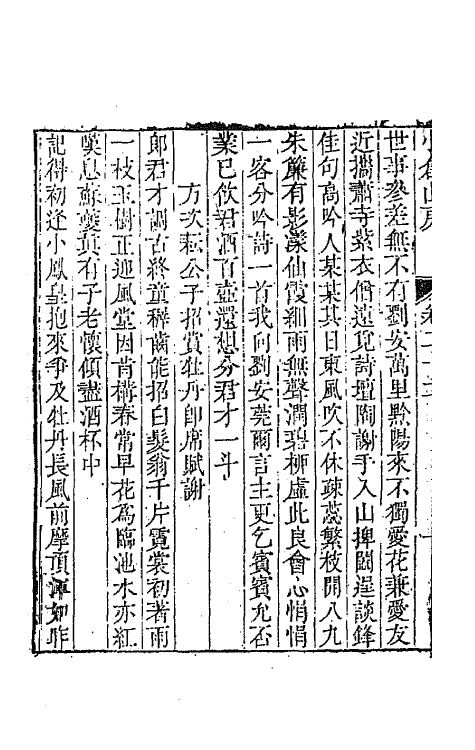 小倉山房
世事參差無不有劉安萬里黔陽來不獨愛花兼愛友
近攜蕭寺紫衣僧遠覓詩壇陶謝手入山捭闔逞談鋒
佳句高吟人某某其日東風吹不休疎蕊繁枝開八九
朱簾有影漾仙霞細雨無聲潤碧柳虛此良會心悁悁
一客分吟詩一首我向劉安莞爾言主更乞賓賓允否
業已飲君酒百壺還想分君才一斗
方次耘公子招賞牡丹即席賦謝
郎君才調古終童稱齒能招白髮翁千片霓裳初著雨
一枝玉樹正迎風堂因肯構春常早花為臨池水亦紅
嘆息蘇夔真有子老懷傾盡酒杯中
記得初逢小鳳皇抱來爭及牡丹長風前摩頂渾如昨